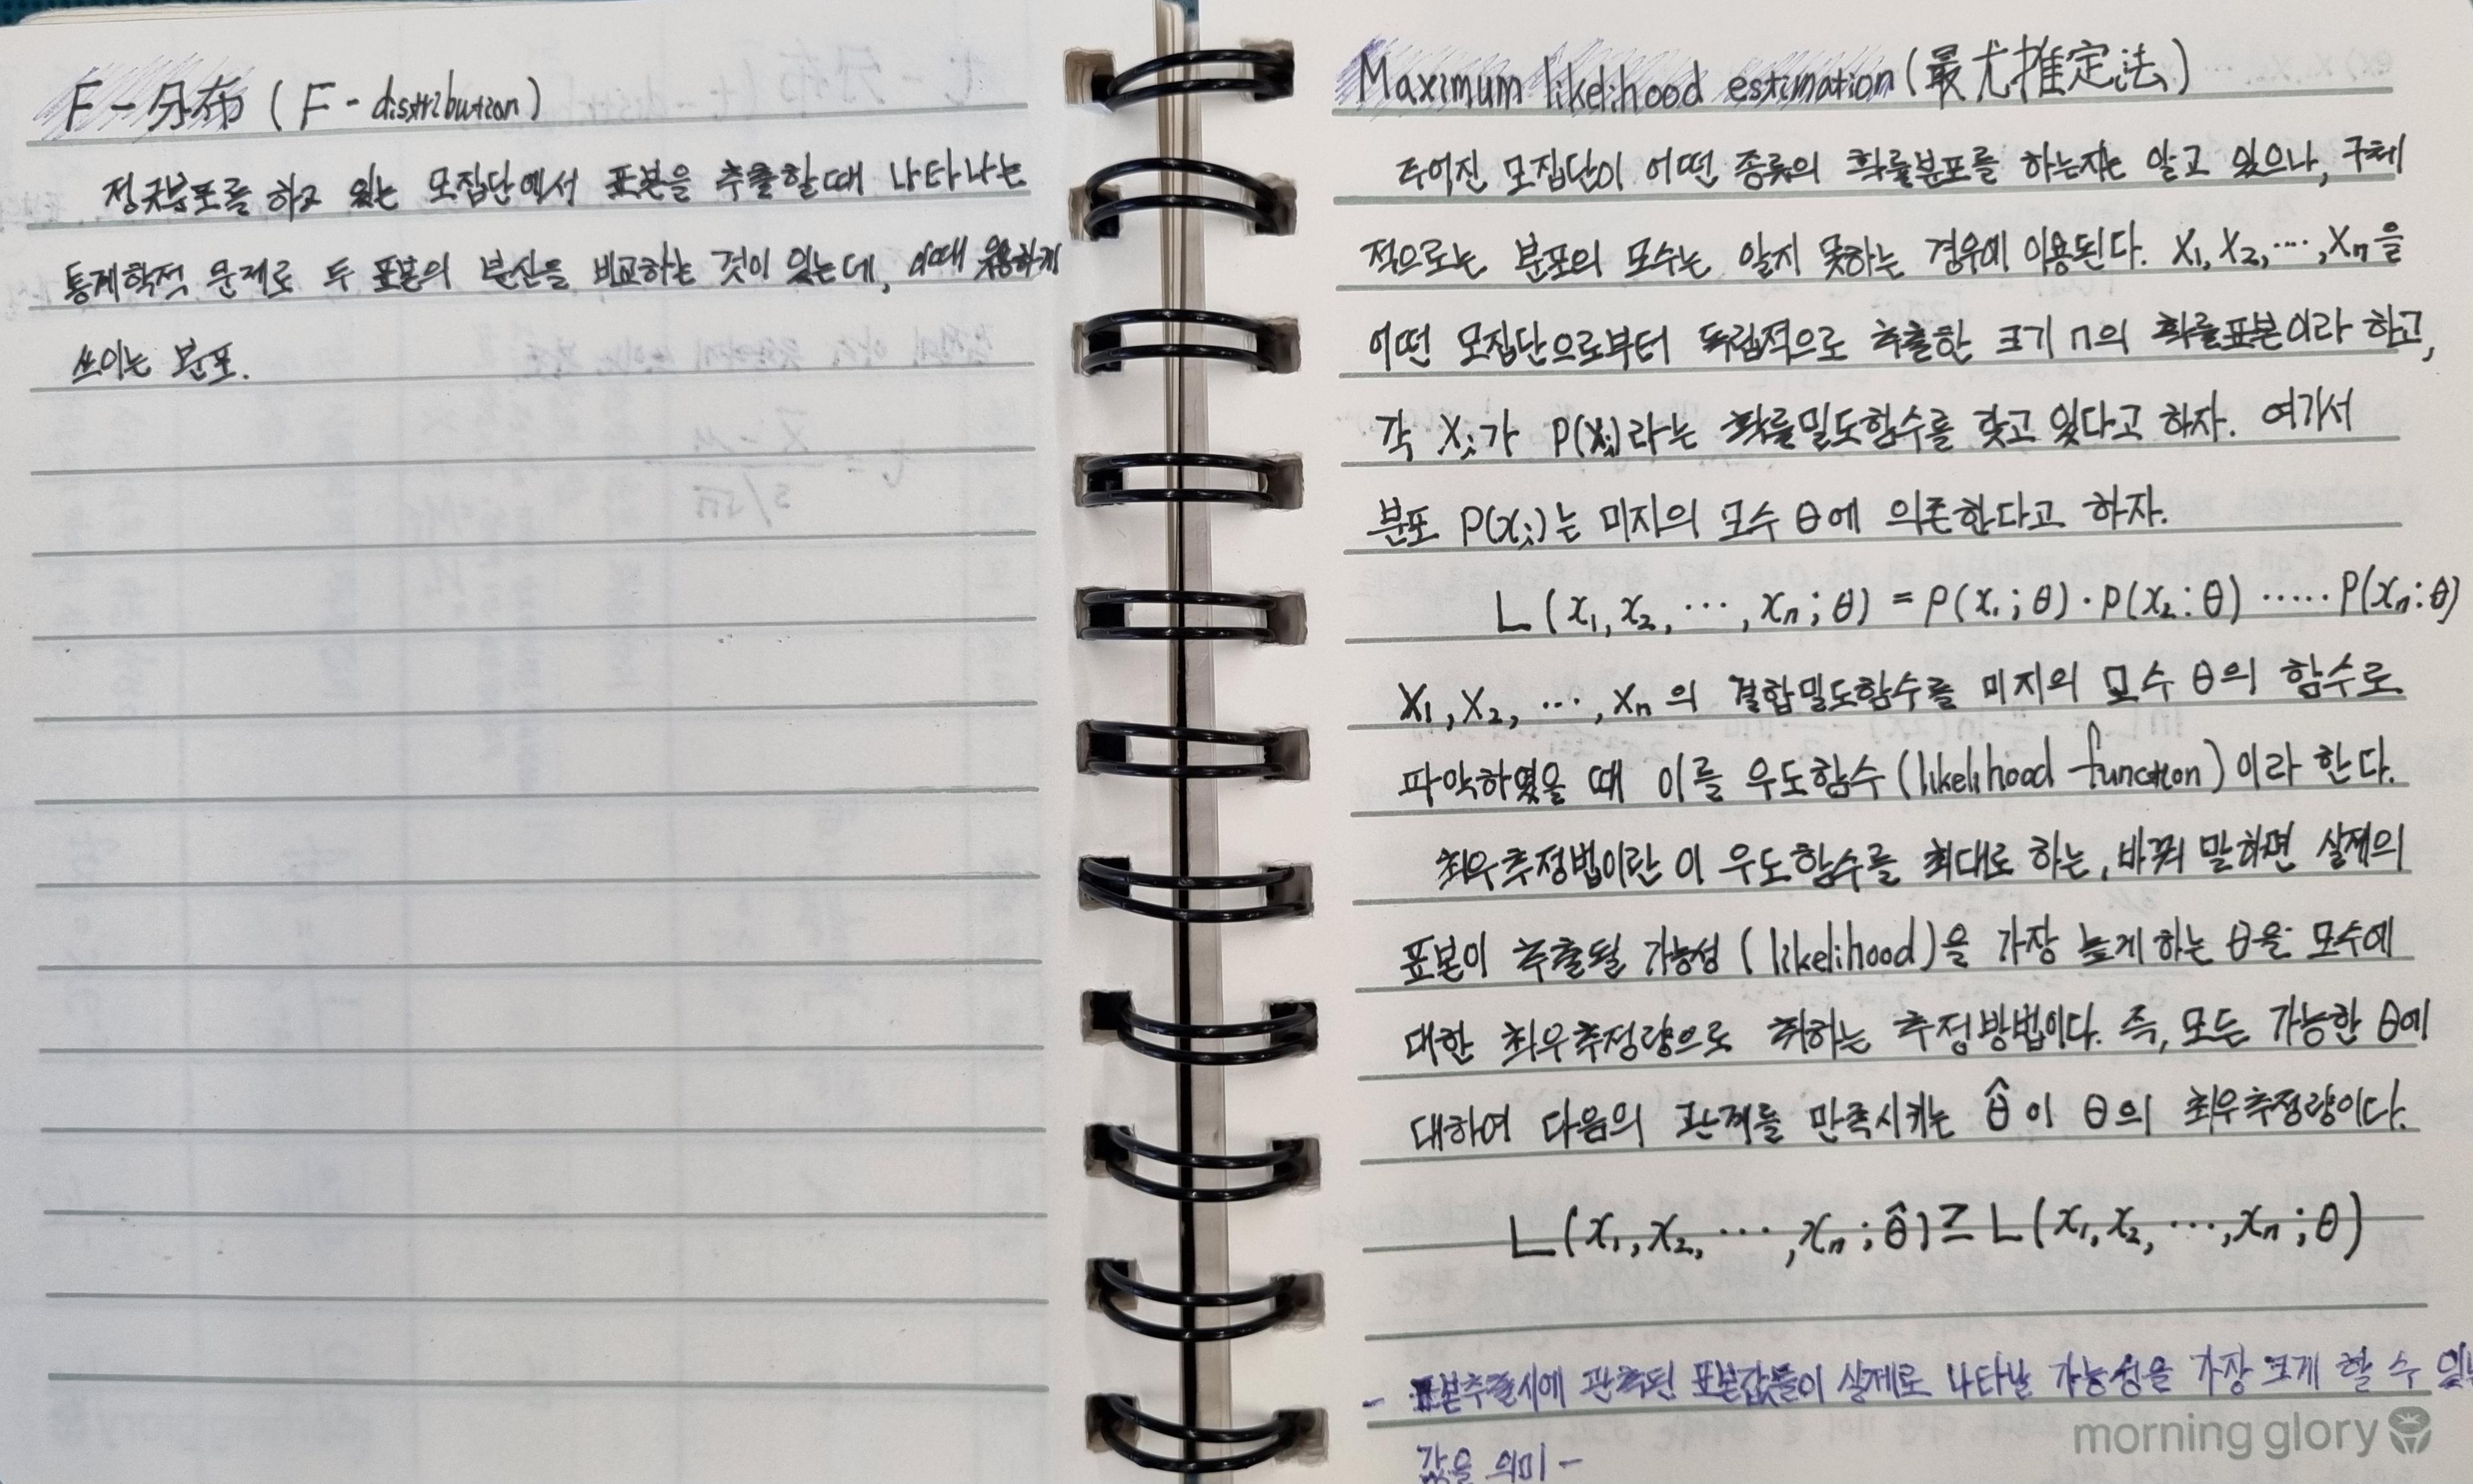 F-分布 (F-distribution)
정규분포를 하고 있는 모집단에서 표본을 추출할 때 나타나는
통계학적 문제로 두 표본의 분산을 비교하는 것이 있는데, 이때 유용하게
쓰이는 분포.
Maximum likelihood estimation (最尤推定法)
주어진 모집단이 어떤 종류의 확률분포를 하는지는 알고 있으나, 구체
적으로는 분포의 모수는 알지 못하는 경우에 이용된다. X₁, X₂, ⋯, Xₙ을
어떤 모집단으로부터 독립적으로 추출한 크기 n의 확률표본이라 하고,
각 Xᵢ가 P(xᵢ)라는 확률밀도함수를 갖고 있다고 하자. 여기서
분포 P(xᵢ)는 미지의 모수 θ에 의존한다고 하자.
L(x₁, x₂, ⋯, xₙ; θ) = P(x₁; θ)·P(x₂: θ) ⋯⋯ P(xₙ: θ)
X₁, X₂, ⋯, Xₙ의 결합밀도함수를 미지의 모수 θ의 함수로
파악하였을 때 이를 우도함수 (likelihood function)이라 한다.
최우추정법이란 이 우도함수를 최대로 하는, 바꿔 말하면 실제의
표본이 추출될 가능성 (likelihood)을 가장 높게 하는 θ을 모수에
대한 최우추정량으로 취하는 추정방법이다. 즉, 모든 가능한 θ에
대하여 다음의 관계를 만족시키는 θ̂이 θ의 최우추정량이다.
L(x₁, x₂, ⋯, xₙ; θ̂) ≥ L(x₁, x₂, ⋯, xₙ; θ)
- 표본추출시에 관측된 표본값들이 실제로 나타날 가능성을 가장 크게 할 수 있는
값을 의미 -
morning glory